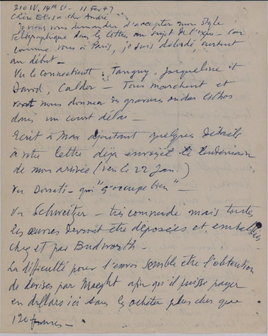 210 W. 14th St - 18 Fev 47
Chère Elisa - cher André
Je vous demander d'accepter mon style
télégraphique dans la lettre au sujet de l'expo -
comme vous à Paris, je suis débordé surtout
au début -
Vu le consentement: Tanguy, Jacqueline et
David, Calder - Tous marchent et
vont nous donner des gravures ou des lithos
dans un court délai -
Ecrit à Max ajoutant quelques détails
à votre lettre déjà envoyée le lendemain
de mon arrivée (vers le 22 Jan.)
Vu Donati - qui "s'occupe bien" -
Vu Schwetter - très comprendre mais toutes
les œuvres devront être déposées et emballées
chez et par Budworth -
La difficulté pour l'envoi semble être l'obtention
de devises par Maeght afin qu'il puisse payer
en dollars ici sans les acheter plus cher que
120 francs -